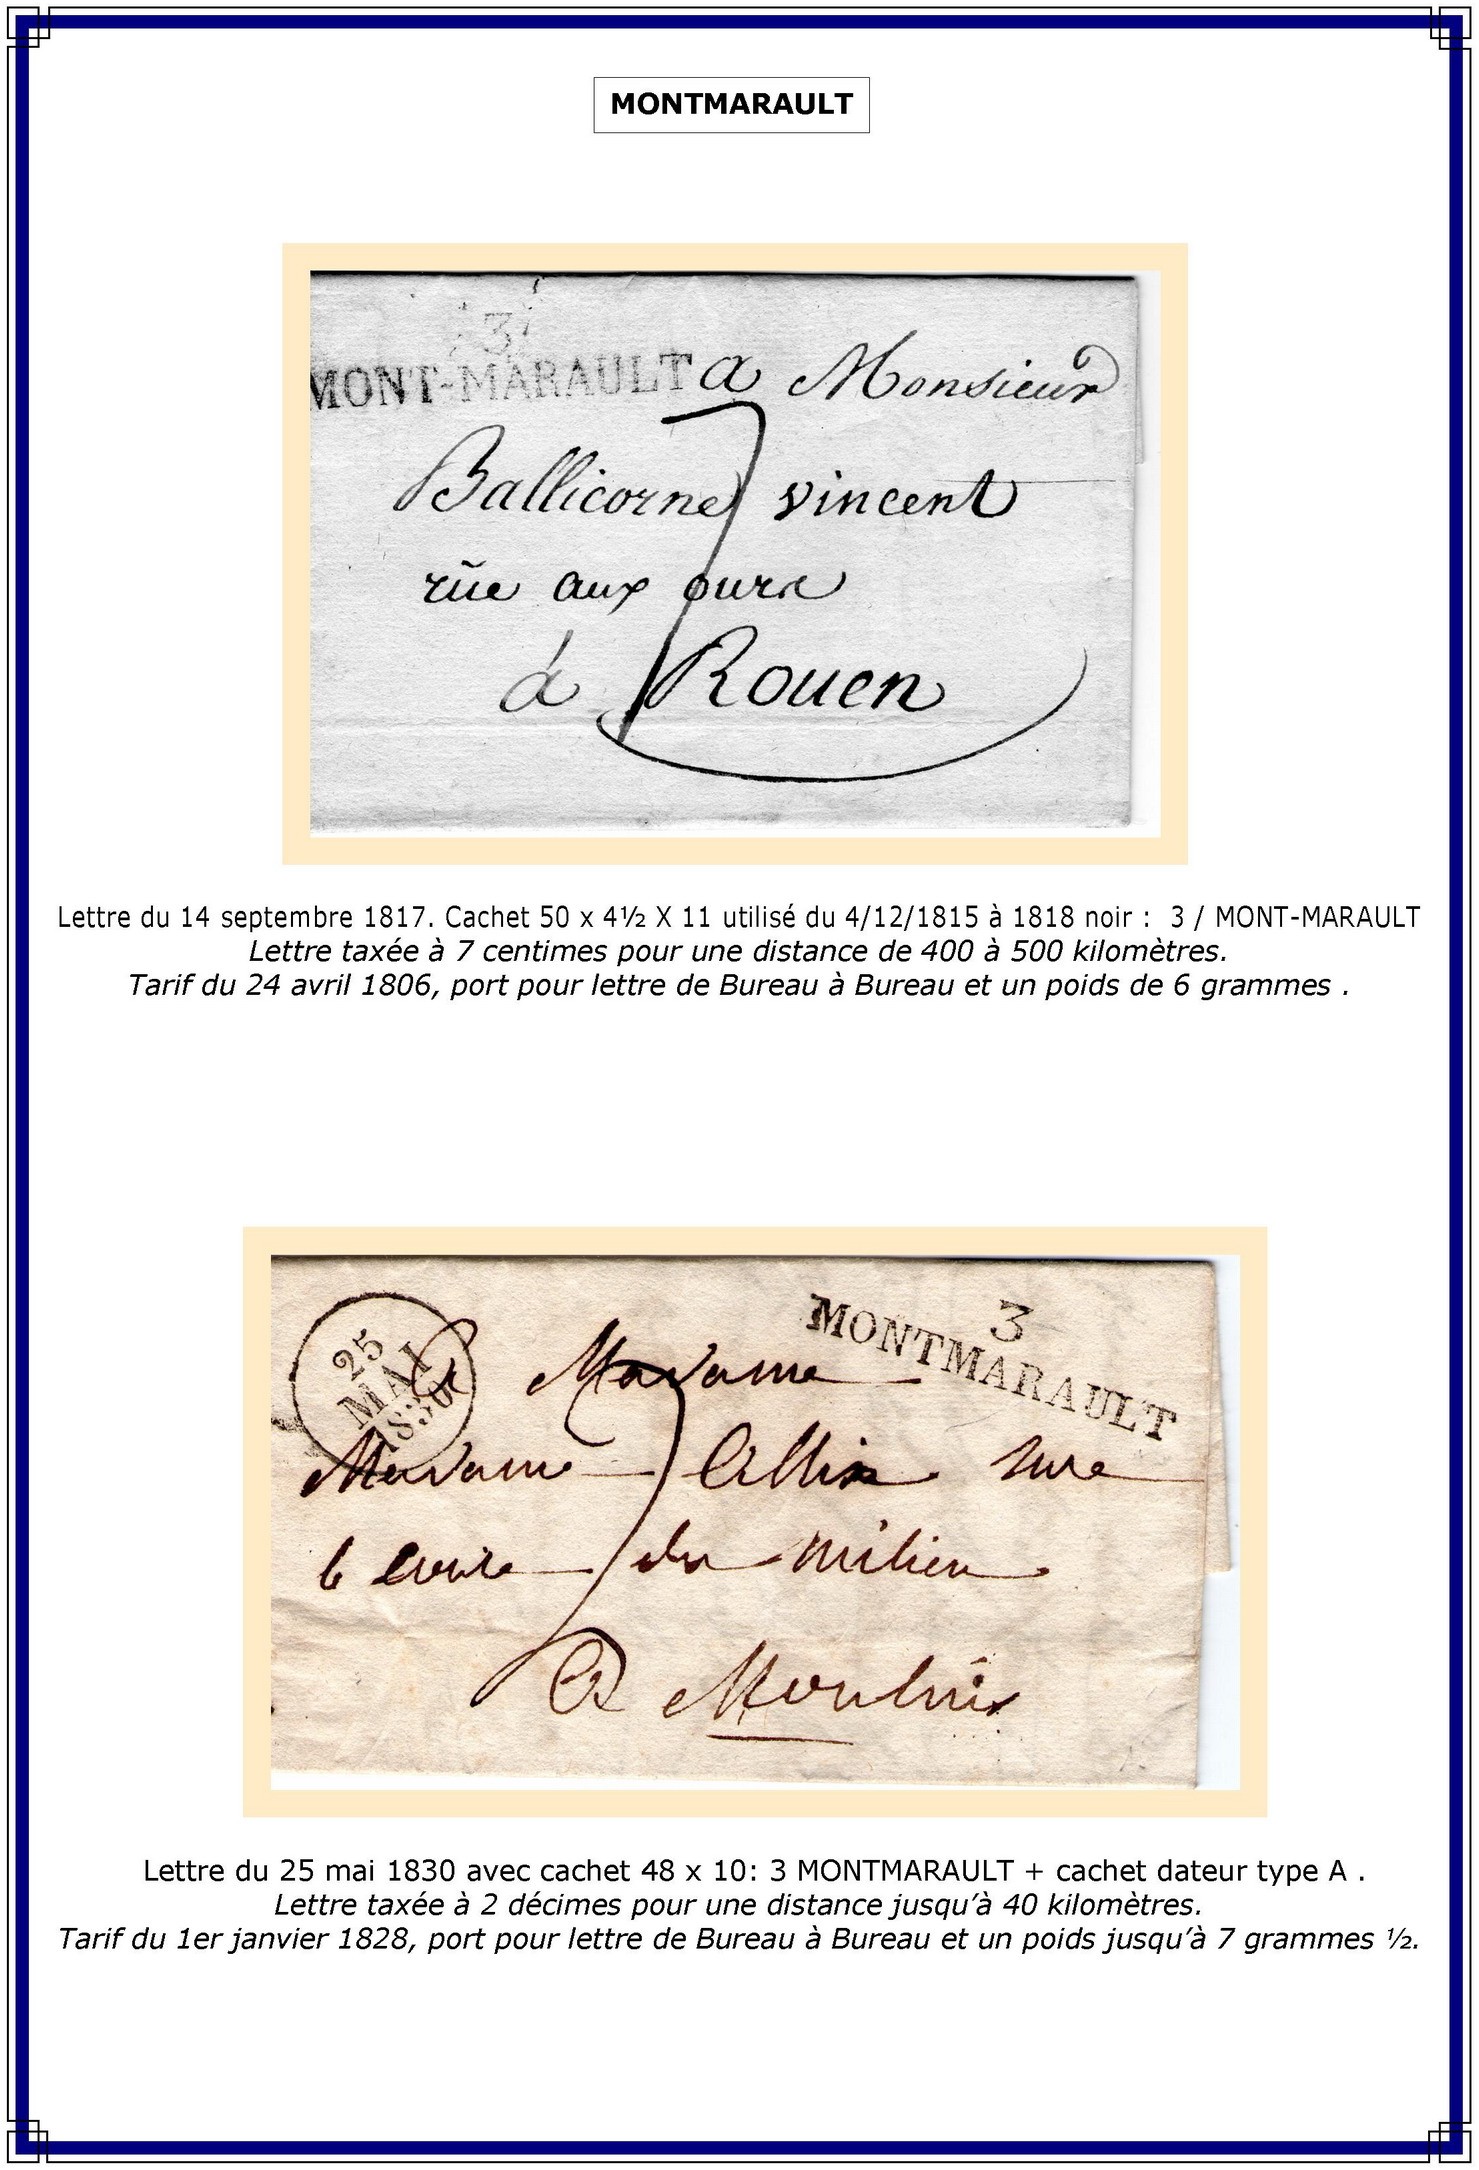 MONTMARAULT
3
MONT-MARAULT a Monsieur
7
Ballicorne vincent
rüe aux ours
à Rouen
Lettre du 14 septembre 1817. Cachet 50 x 4½ X 11 utilisé du 4/12/1815 à 1818 noir : 3 / MONT-MARAULT
Lettre taxée à 7 centimes pour une distance de 400 à 500 kilomètres.
Tarif du 24 avril 1806, port pour lettre de Bureau à Bureau et un poids de 6 grammes .
25
MAI
1830
3
MONTMARAULT
A Madame
2
Madame
du milieu
A Moulins
Lettre du 25 mai 1830 avec cachet 48 x 10: 3 MONTMARAULT + cachet dateur type A .
Lettre taxée à 2 décimes pour une distance jusqu’à 40 kilomètres.
Tarif du 1er janvier 1828, port pour lettre de Bureau à Bureau et un poids jusqu’à 7 grammes ½.